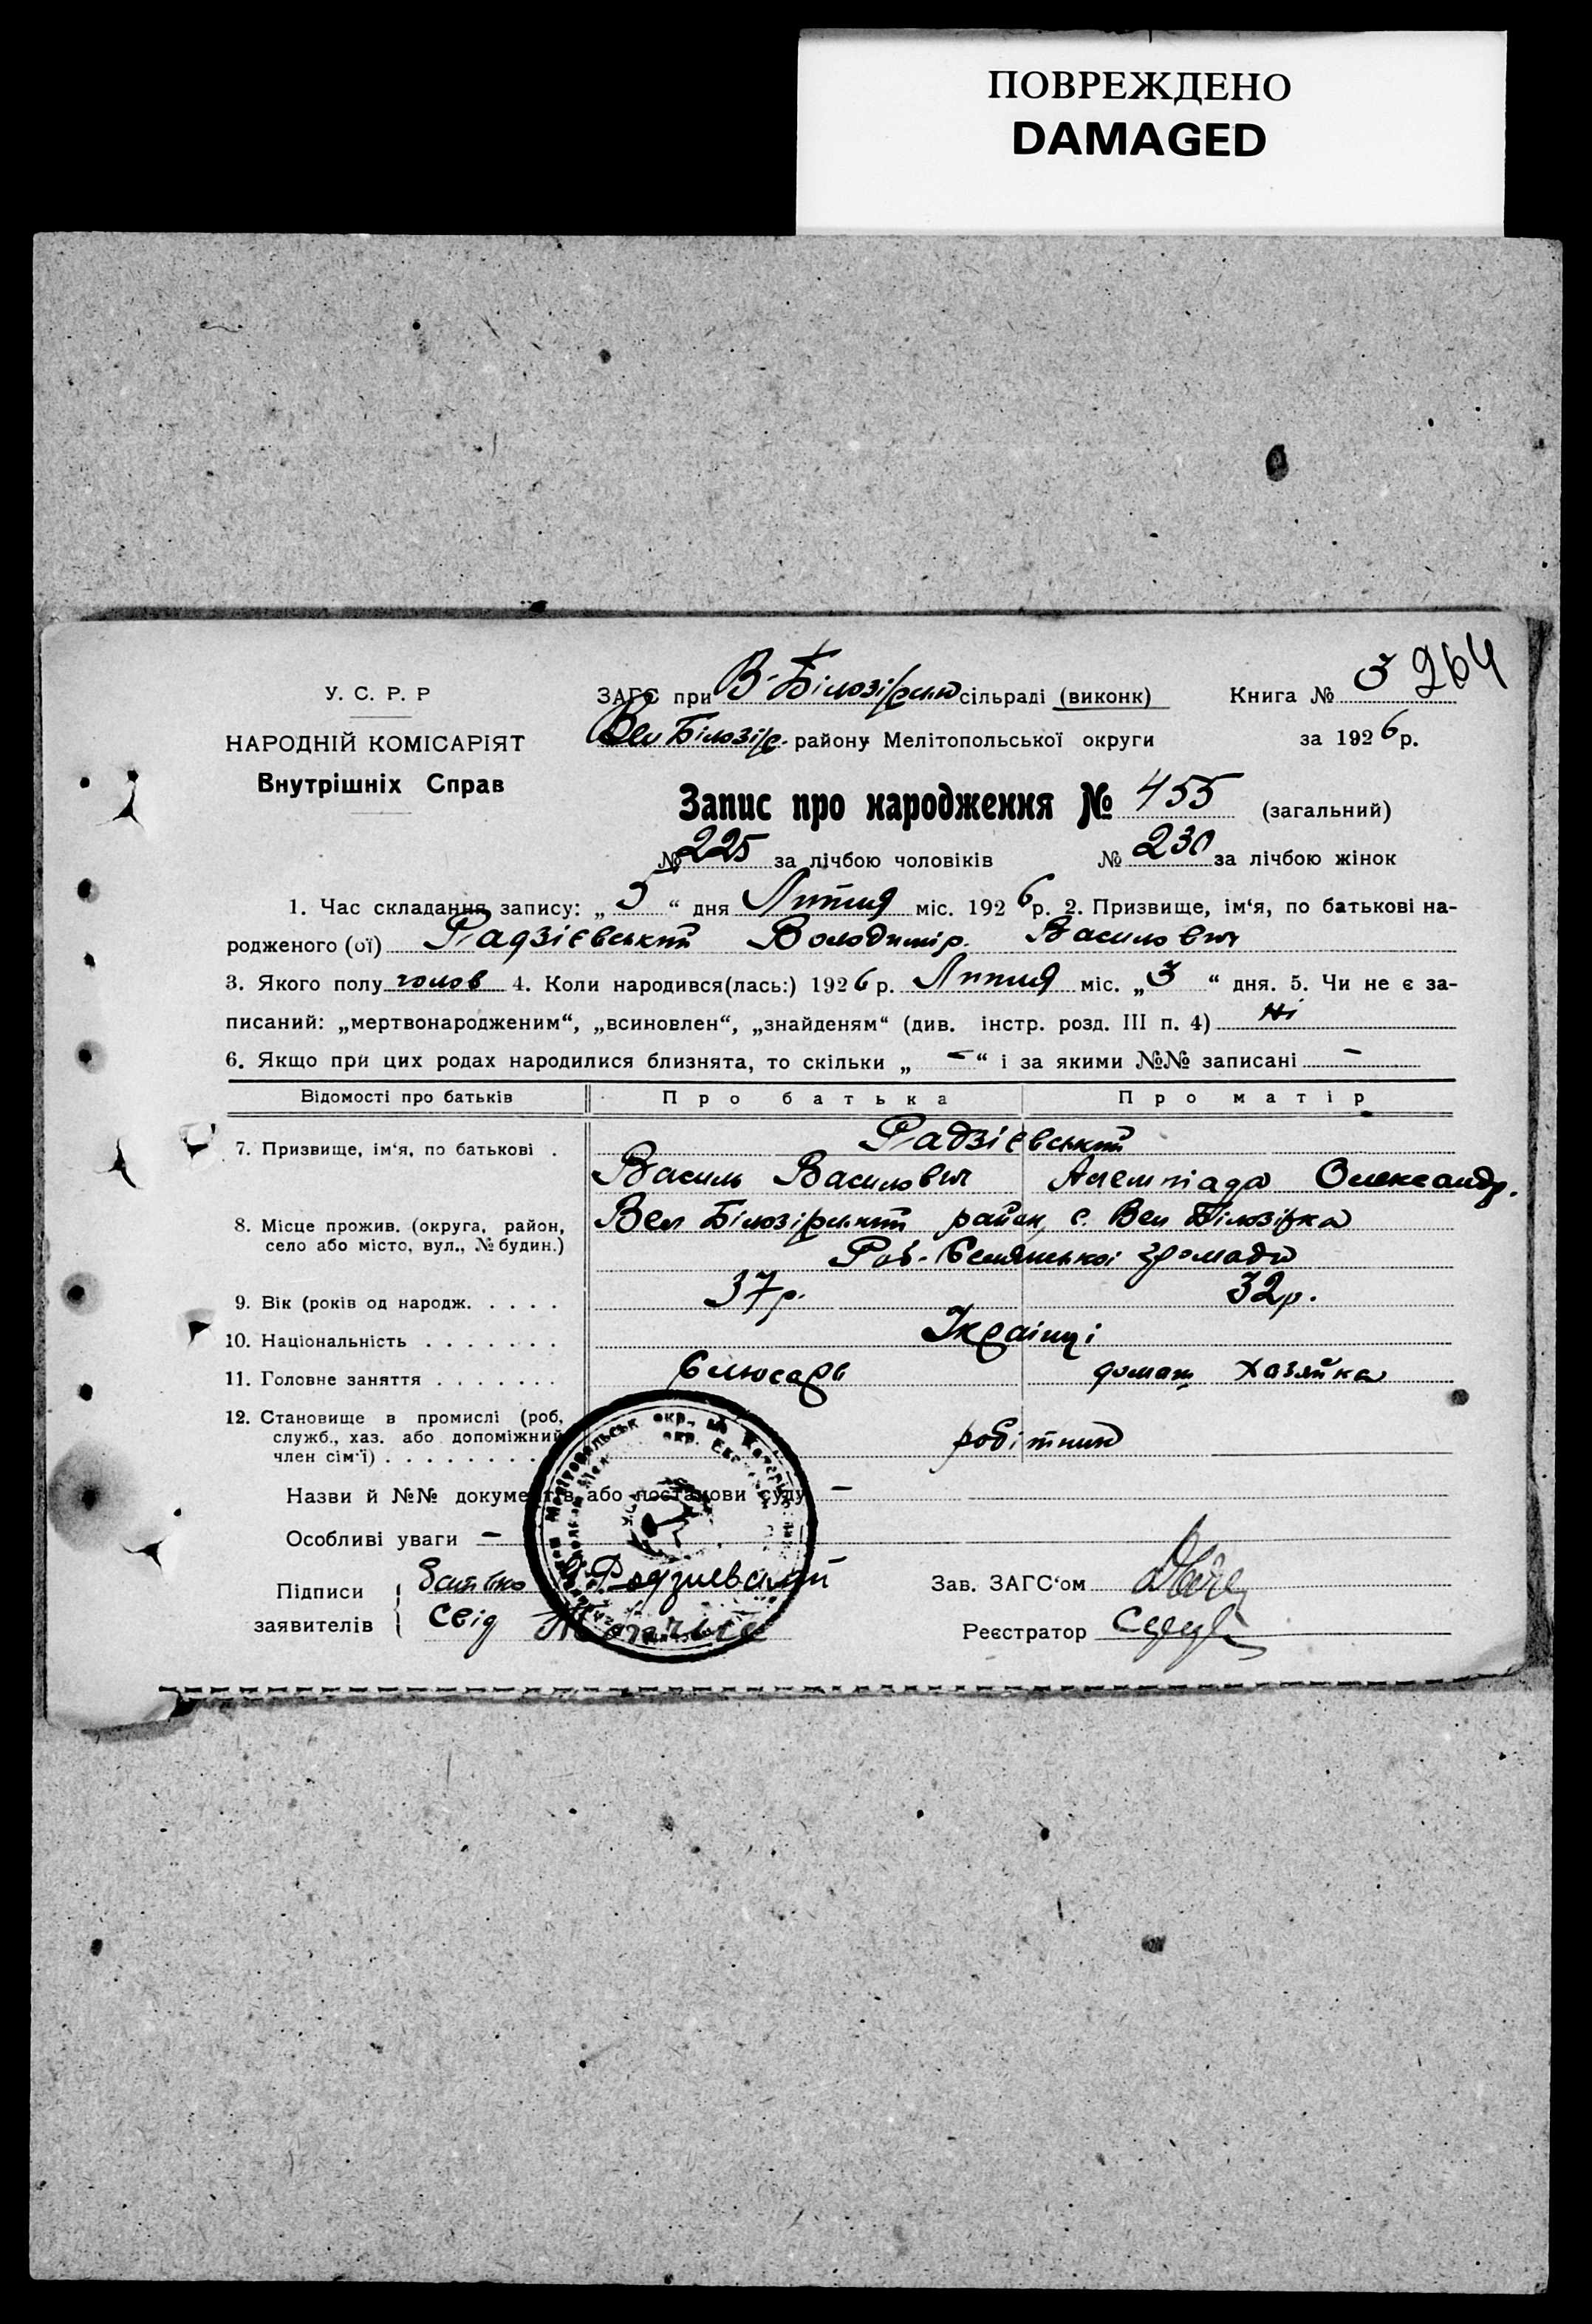 ПОВРЕЖДЕНО
DAMAGED
У. С. Р. Р
ЗАГС при В-Білозірськ сільраді (виконк)
Книга № 3 264
НАРОДНІЙ КОМІСАРІЯТ
Вел Білозір. району Мелітопольської округи
за 1926 р.
Внутрішніх Справ
Запис про народження № 455 (загальний)
№ 225 за лічбою чоловіків № 230 за лічбою жінок
1. Час складання запису: „ 3 “ дня Липня міс. 1926 р. 2. Призвище, ім‘я, по батькові на-
родженого (ої) Радзієвський Володимір. Василович
3. Якого полу чолов 4. Коли народився(лась:) 1926 р. Липня міс. „ 3 “ дня. 5. Чи не є за-
писаний: „мертвонародженим“, „всиновлен“, „знайденям“ (див. інстр. розд. III п. 4) Ні
6. Якщо при цих родах народилися близнята, то скільки „ – “ і за якими №№ записані –
Відомості про батьків Про батька Про матір
7. Призвище, ім‘я, по батькові . Радзієвський
Василь Василович Олександр.
8. Місце прожив. (округа, район, село або місто, вул., № будин.) Вел Білозірський район, с. Вел Білозірка
Роб. Селянської громади
9. Вік (років од народж. . . . . 37 р. 32 р.
10. Національність . . . . . . . Українці
11. Головне заняття . . . . . . . Слюсарь домаш хазяйка
12. Становище в промислі (роб, служб., хаз. або допоміжний член сім‘ї) . . . . . . . . робітник
Назви й №№ документів або постанови суду –
Особливі уваги –
Підписи заявителів
Батько Радзиевский
Свід
Зав. ЗАГС‘ом
Реєстратор